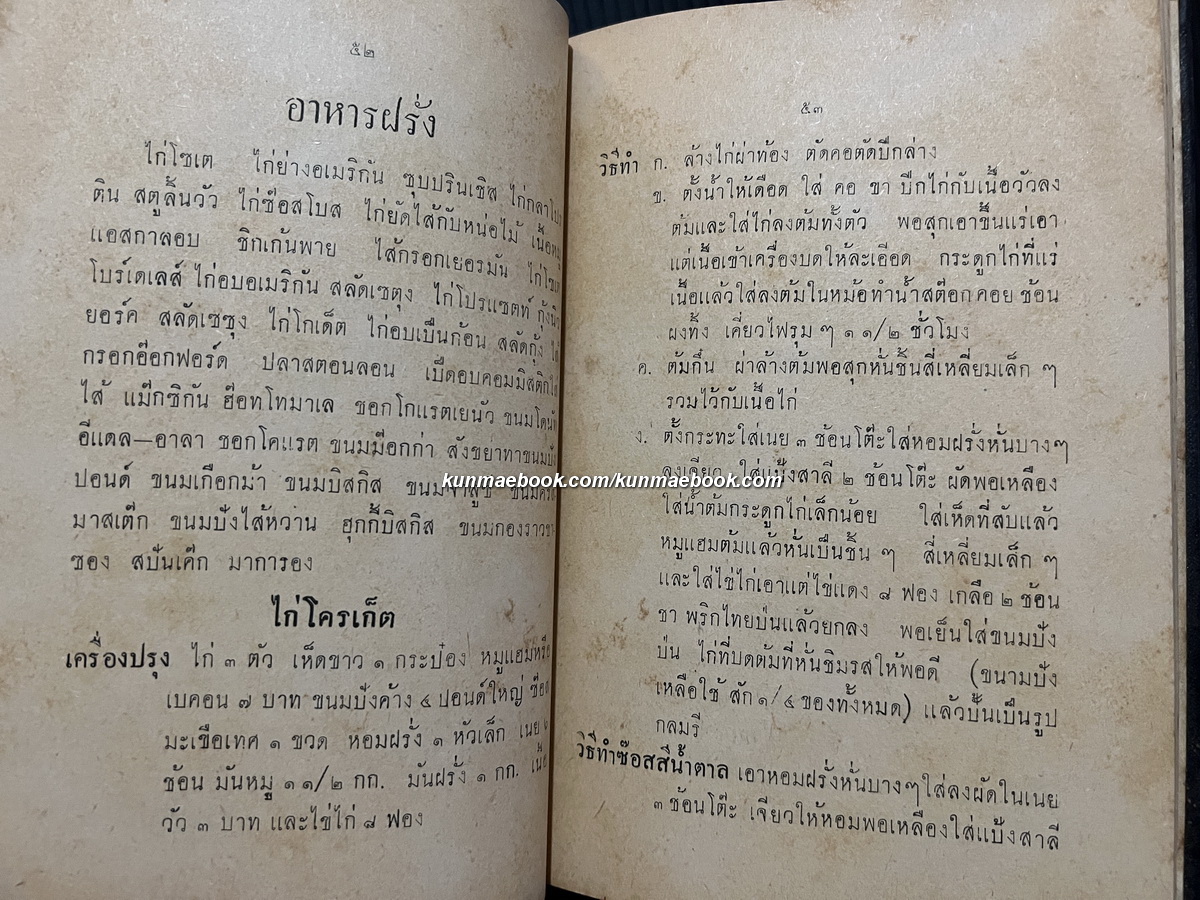 ๕๒
อาหารฝรั่ง
ไก่โซเต ไก่ย่างอเมริกัน ซุบปรินเซิส
ติน สตูลิ้นวัว ไก่ซ๊อสโบส ไก่ยัดไส้กับหน่อไม้
แอสกาลอบ ชิกเก้นพาย ไส้กรอกเยอรมัน
โบร์เดเลส์ ไก่อบอเมริกัน สลัดเซตุง ไก่โปรแซตท์
ยอร์ค สลัดเซซุง ไก่โกเด็ต ไก่อบเป็นก้อน สลัดกุ้ง
กรอกอ๊อกฟอร์ด ปลาสตอนลอน เป็ดอบคอมมิสติก
ไส้ แม๊กซิกัน ฮ๊อทโทมาเล ชอกโกแรตเยนัว
อีแดล—อาลา ชอกโคแรต ขนมม๊อกก่า สังขยาทาขนมปัง
ปอนด์ ขนมเกือกม้า ขนมบิสกิส
มาสเต๊ก ขนมปังไส้หวาน ฮุกกี้บิสกิส
ซอง สปันเค๊ก มาการอง
ไก่โครเก็ต
เครื่องปรุง ไก่ ๓ ตัว เห็ดขาว ๑ กระป๋อง หมูแฮมหรือ
เบคอน ๗ บาท ขนมปังค้าง ๔ ปอนด์ใหญ่ ซ๊อส
มะเขือเทศ ๑ ขวด หอมฝรั่ง ๑ หัวเล็ก เนย
ช้อน มันหมู ๑ ๑/๒ กก. มันฝรั่ง ๑ กก. เนื้อ
วัว ๓ บาท และไข่ไก่ ๘ ฟอง
๕๓
วิธีทำ ก. ล้างไก่ผ่าท้อง ตัดคอตัดปีกล่าง
ข. ตั้งน้ำให้เดือด ใส่ คอ ขา ปีกไก่กับเนื้อวัวลง
ต้มและใส่ไก่ลงต้มทั้งตัว พอสุกเอาขึ้นแร่เอา
แต่เนื้อเข้าเครื่องบดให้ละเอียด กระดูกไก่ที่แร่
เนื้อแล้วใส่ลงต้มในหม้อทำน้ำสต๊อก คอย ช้อน
ผงทิ้ง เคี่ยวไฟรุม ๆ ๑ ๑/๒ ชั่วโมง
ค. ต้มกึ๋น ผ่าล้างต้มพอสุกหั่นชิ้นสี่เหลี่ยมเล็ก ๆ
รวมไว้กับเนื้อไก่
ง. ตั้งกระทะใส่เนย ๓ ช้อนโต๊ะใส่หอมฝรั่งหั่นบางๆ
ลงเจียว ใส่แป้งสาลี ๒ ช้อนโต๊ะ ผัดพอเหลือง
kunmaebook.com/kunmaebook.com
ใส่น้ำต้มกระดูกไก่เล็กน้อย ใส่เห็ดที่สับแล้ว
หมูแฮมต้มแล้วหั่นเป็นชิ้น ๆ สี่เหลี่ยมเล็ก ๆ
และใส่ไข่ไก่เอาแต่ไข่แดง ๘ ฟอง เกลือ ๒ ช้อน
ชา พริกไทยป่นแล้วยกลง พอเย็นใส่ขนมปัง
ป่น ไก่ที่บดต้มที่หั่นชิมรสให้พอดี (ขนามปัง
เหลือใช้ สัก ๑/๔ ของทั้งหมด) แล้วปั้นเป็นรูป
กลมรี
วิธีทำซ๊อสสีน้ำตาล เอาหอมฝรั่งหั่นบางๆใส่ลงผัดในเนย
๓ ช้อนโต๊ะ เจียวให้หอมพอเหลืองใส่แป้งสาลี